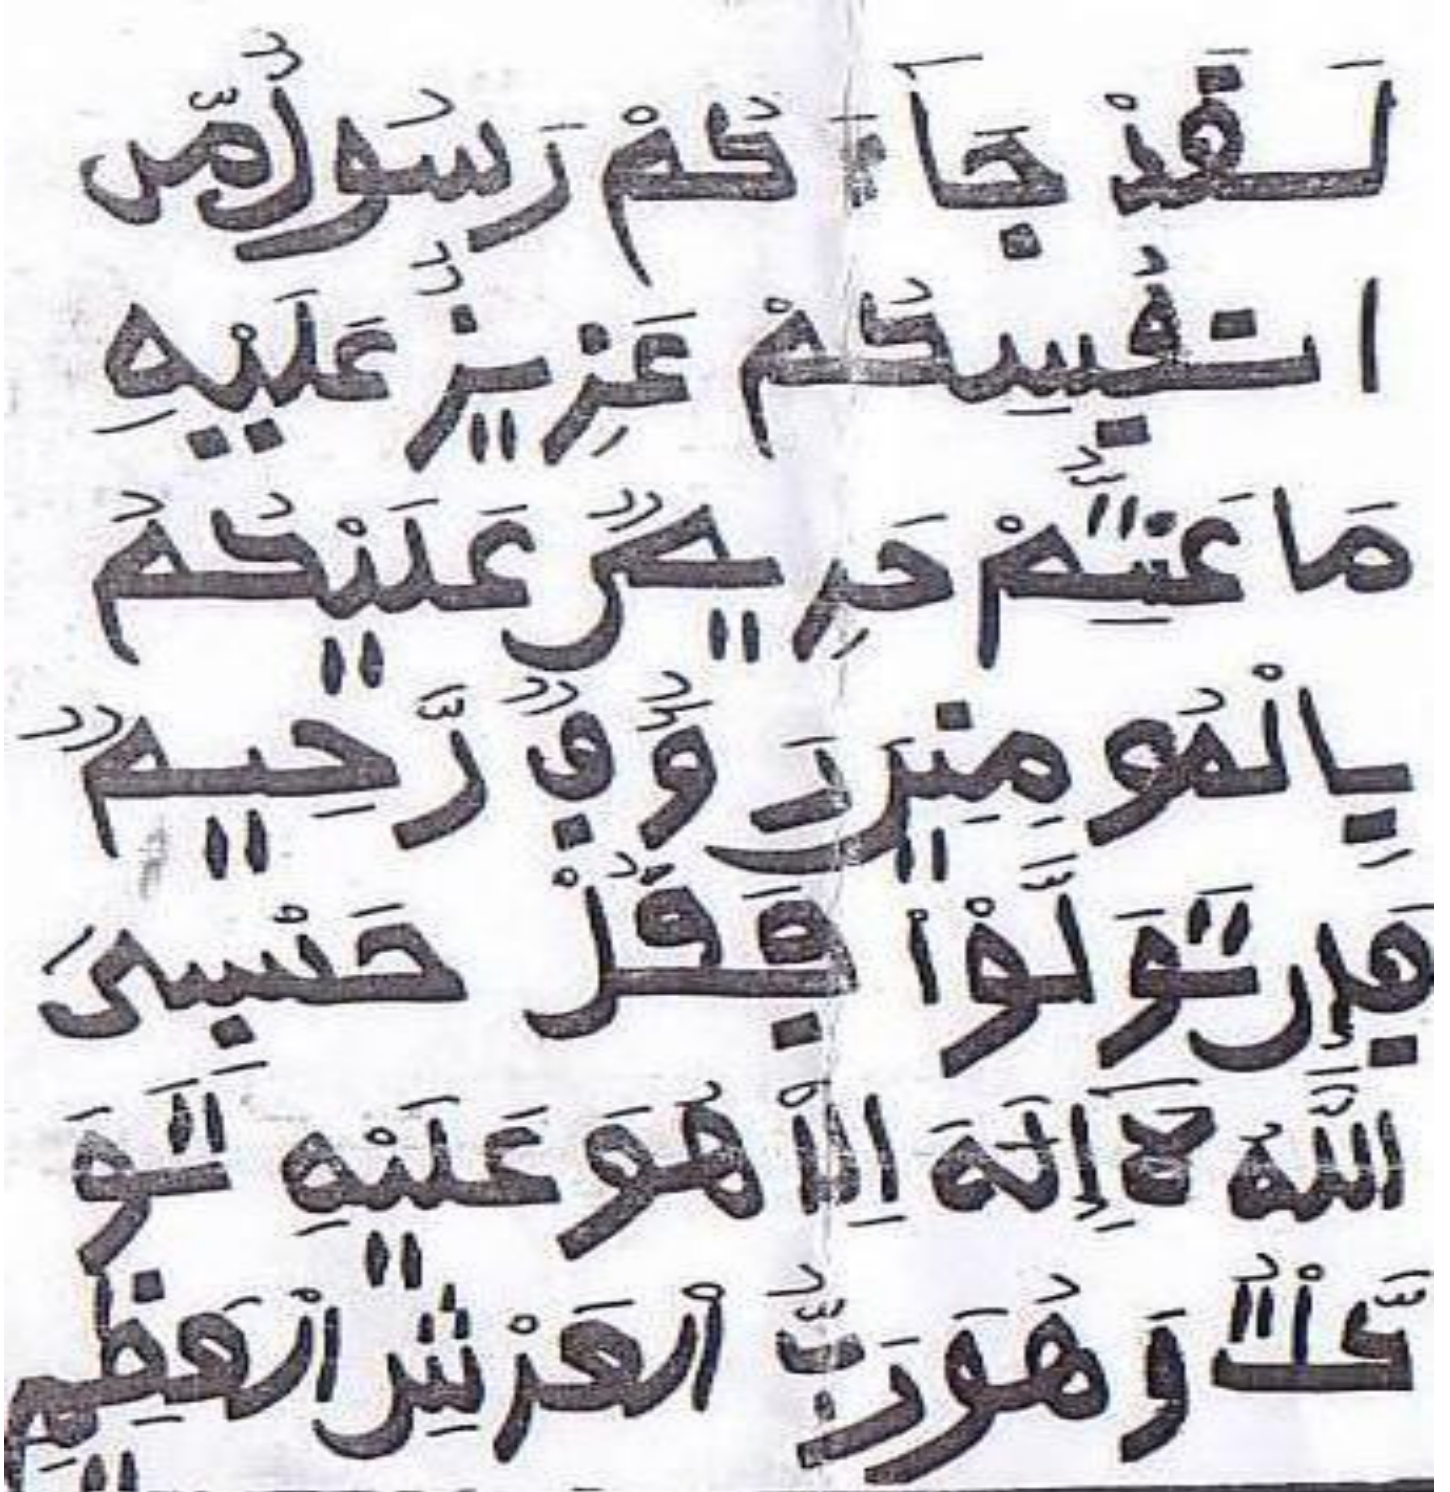 لَقَدْ جَآءَ كُمْ رَسُولٌ مِّن
اَنفُسِكُمْ عَزِيزٌ عَلَيْهِ
مَا عَنِتُّمْ حَرِيصٌ عَلَيْكُمْ
بِالْمُومِنِينَ رَءُوفٌ رَّحِيمٌ
فَإِن تَوَلَّوْا فَقُلْ حَسْبِىَ
اللَّهُ لَآ إِلَهَ إِلَّا هُوَ عَلَيْهِ تَوَ
كَّلْتُ وَهُوَ رَبُّ الْعَرْشِ الْعَظِيمِ